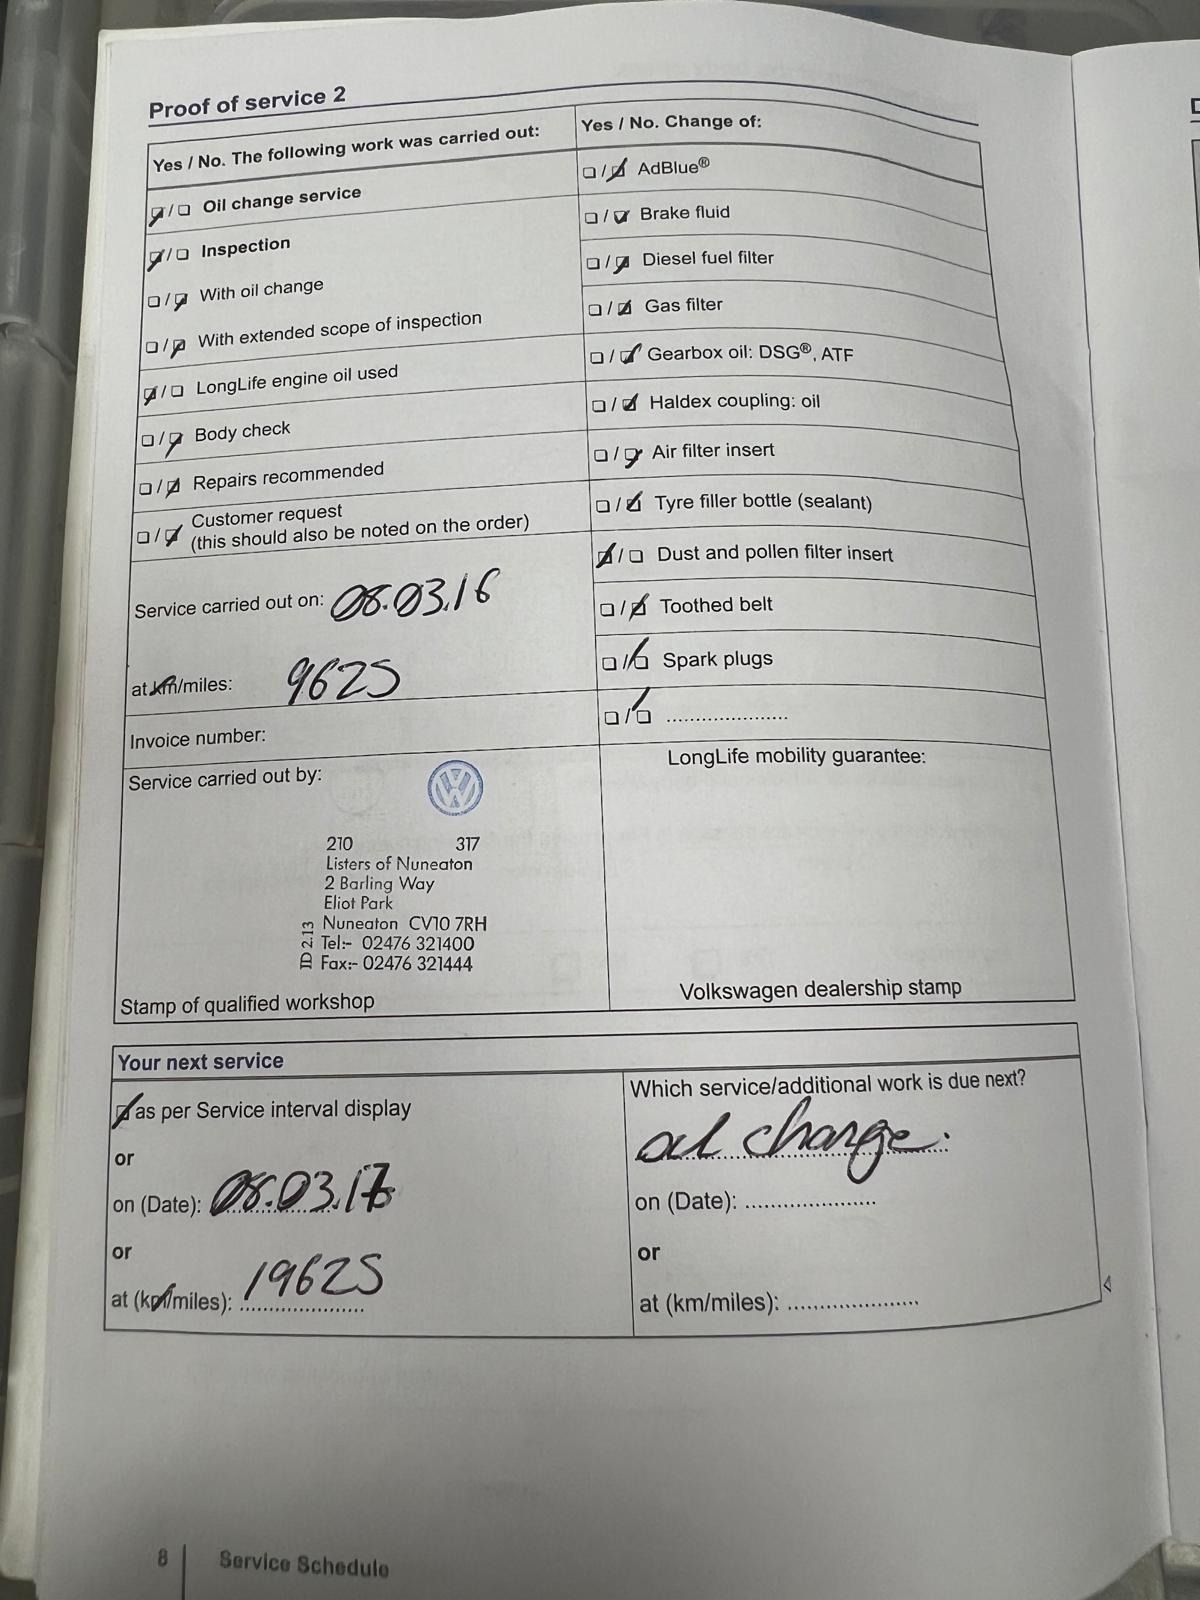 Proof of service 2
Yes / No. The following work was carried out:
Oil change service
Inspection
With oil change
With extended scope of inspection
LongLife engine oil used
Body check
Repairs recommended
Customer request
(this should also be noted on the order)
Service carried out on: 08.03.16
at km/miles: 9625
Invoice number:
Service carried out by:
210 317
Listers of Nuneaton
2 Barling Way
Eliot Park
Nuneaton CV10 7RH
Tel:- 02476 321400
Fax:- 02476 321444
ID 2.13
Stamp of qualified workshop
Yes / No. Change of:
AdBlue®
Brake fluid
Diesel fuel filter
Gas filter
Gearbox oil: DSG®, ATF
Haldex coupling: oil
Air filter insert
Tyre filler bottle (sealant)
Dust and pollen filter insert
Toothed belt
Spark plugs
.....................
LongLife mobility guarantee:
Volkswagen dealership stamp
Your next service
as per Service interval display
or
on (Date): 08.03.17
or
at (km/miles): 19625
Which service/additional work is due next?
oil change.
on (Date): ......................
or
at (km/miles): ......................
8 Service Schedule